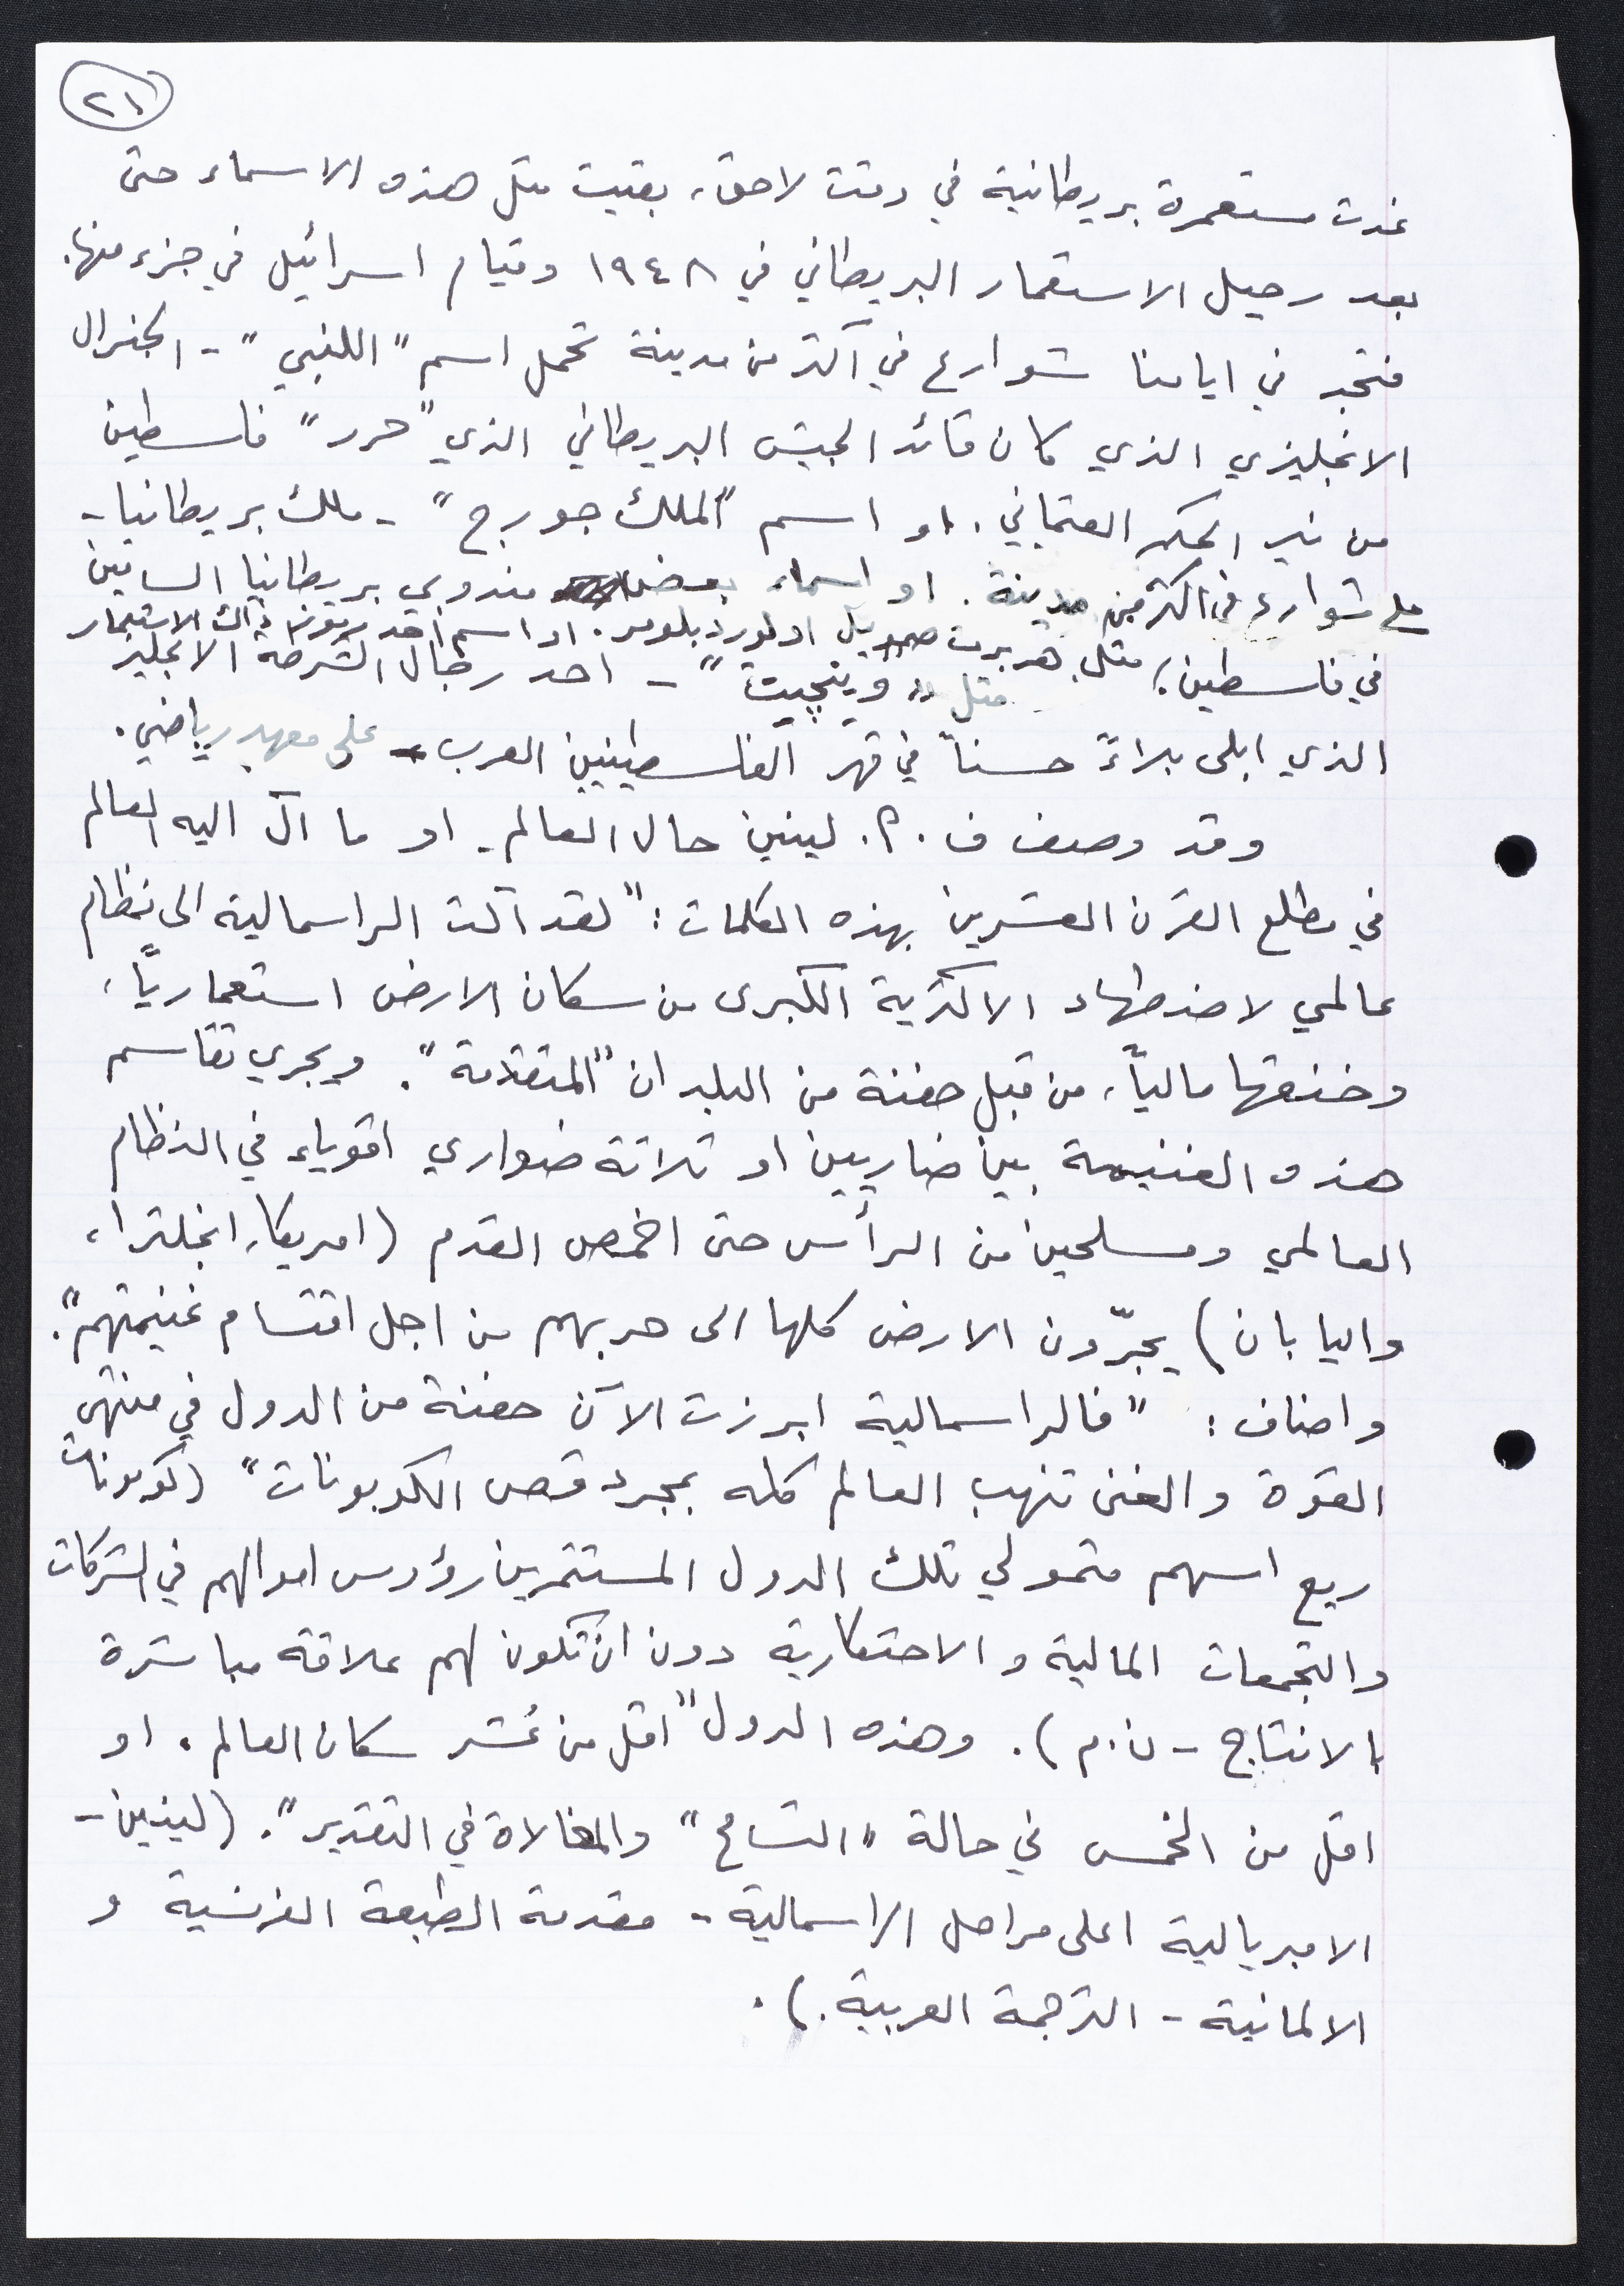 ٢١
غدت مستعمرة بريطانية في وقت لاحق، بقيت مثل هذه الاسماء حتى
بعد رحيل الاستعمار البريطاني في ١٩٤٨ وقيام اسرائيل في جزء منها.
فتجد في ايامنا شوارع في اكثر من مدينة تحمل اسم "اللنبي" - الجنرال
الانجليزي الذي كان قائد الجيش البريطاني الذي "حرر" فلسطين
من نير الحكم العثماني. او اسم "الملك جورج" - ملك بريطانيا -
على شوارع في اكثر من مدينة. او اسماء بعض مندوبي بريطانيا الساميين
في فلسطين؛ مثل هربرت صموئيل او لورد بلومر. او اسم احد رموز ذاك الاستعمار
مثل "وينجيت" - احد رجال الشرطة الانجليز
الذي ابلى بلاءً حسناً في قهر الفلسطينيين العرب - على معهد رياضي.
وقد وصف ف. إ. لينين حال العالم - او ما آل اليه العالم
في مطلع القرن العشرين بهذه الكلمات: "لقد آلت الراسمالية الى نظام
عالمي لاضطهاد الاكثرية الكبرى من سكان الارض استعمارياً،
وخنقها مالياً، من قبل حفنة من البلدان "المتقدمة". ويجري تقاسم
هذه الغنيمة بين ضاريين او ثلاثة ضواري اقوياء في النظام
العالمي ومسلحين من الرأس حتى اخمص القدم (امريكا، انجلترا،
واليابان) يجرّون الارض كلها الى حربهم من اجل اقتسام غنيمتهم".
واضاف: "فالراسمالية ابرزت الآن حفنة من الدول في منتهى
القوة والغنى تنهب العالم كله بمجرد قص الكوبونات" (كوبونات
ريع اسهم متمولي تلك الدول المستثمرين رؤوس اموالهم في الشركات
والتجمعات المالية والاحتكارية دون ان تكون لهم علاقة مباشرة
بالانتاج - ن.م). وهذه الدول "اقل من عُشر سكان العالم. او
اقل من الخمس في حالة "التسامح" والمغالاة في التقدير". (لينين -
الامبريالية اعلى مراحل الراسمالية - مقدمة الطبعة الفرنسية و
الالمانية - الترجمة العربية.).